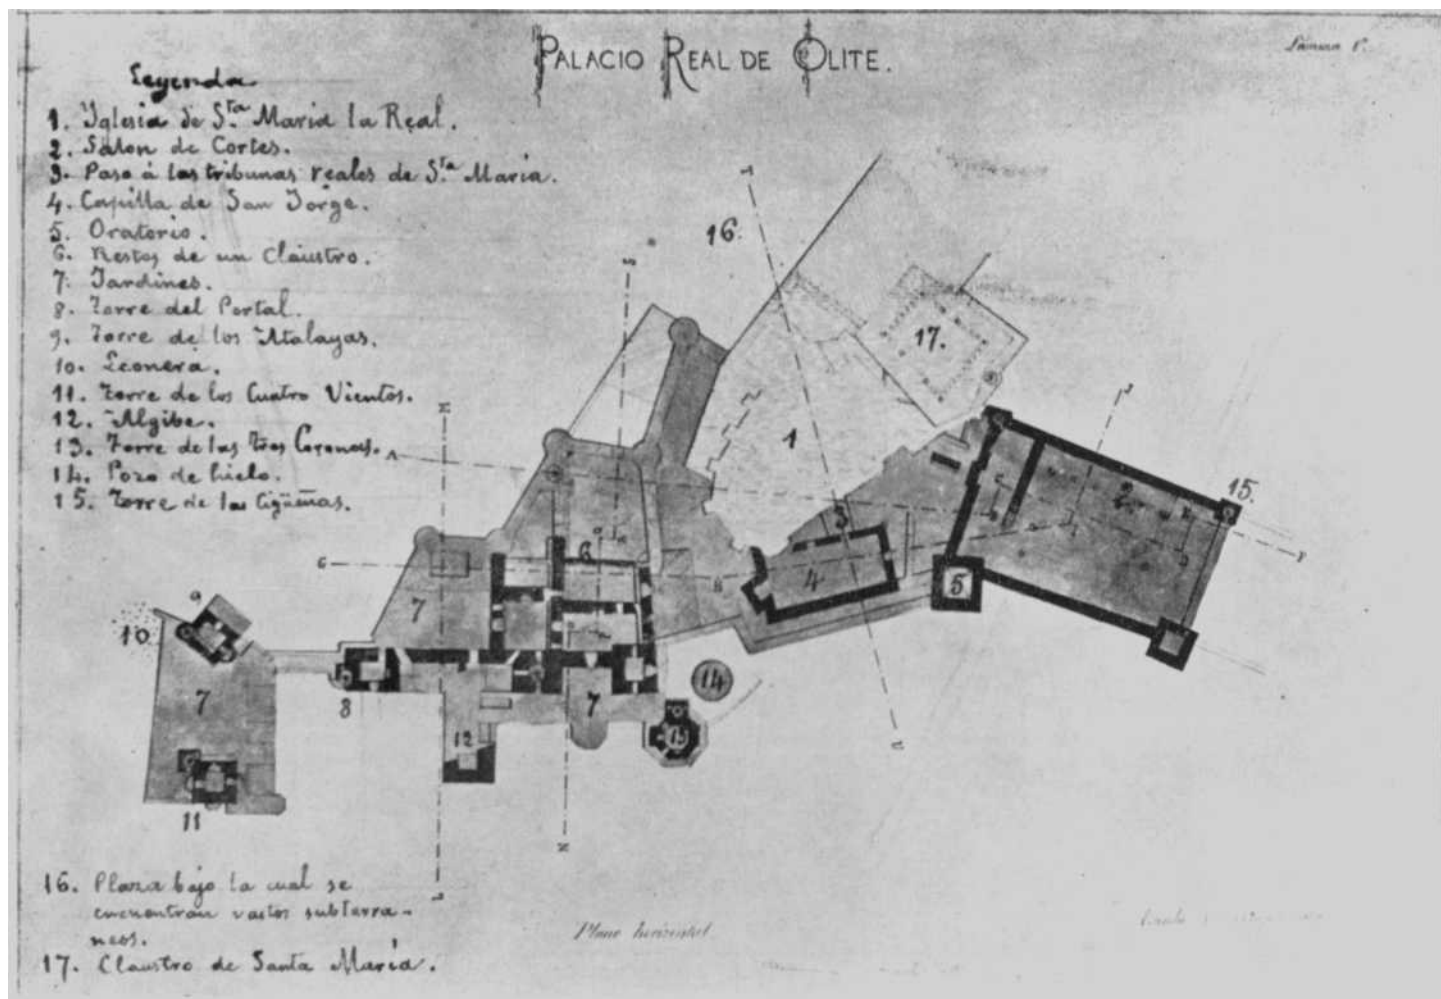 PALACIO REAL DE OLITE.
Lámina 1ª.
Leyenda
1. Iglesia de S.ta Maria la Real.
2. Salon de Cortes.
3. Paso á las tribunas reales de S.ta Maria.
4. Capilla de San Jorge.
5. Oratorio.
6. Restos de un Claustro.
7. Jardines.
8. Torre del Portal.
9. Torre de los Atalayas.
10. Leonera.
11. Torre de los Cuatro Vientos.
12. Algibe.
13. Torre de las Tres Coronas.
14. Pozo de hielo.
15. Torre de las Cigüeñas.
16. Plaza bajo la cual se
encuentran vastos subterra-
neos.
17. Claustro de Santa María.
16.
17.
1
15.
2
3
4
5
6
7
9
10
7
8
7
14
13
12
11
Plano horizontal